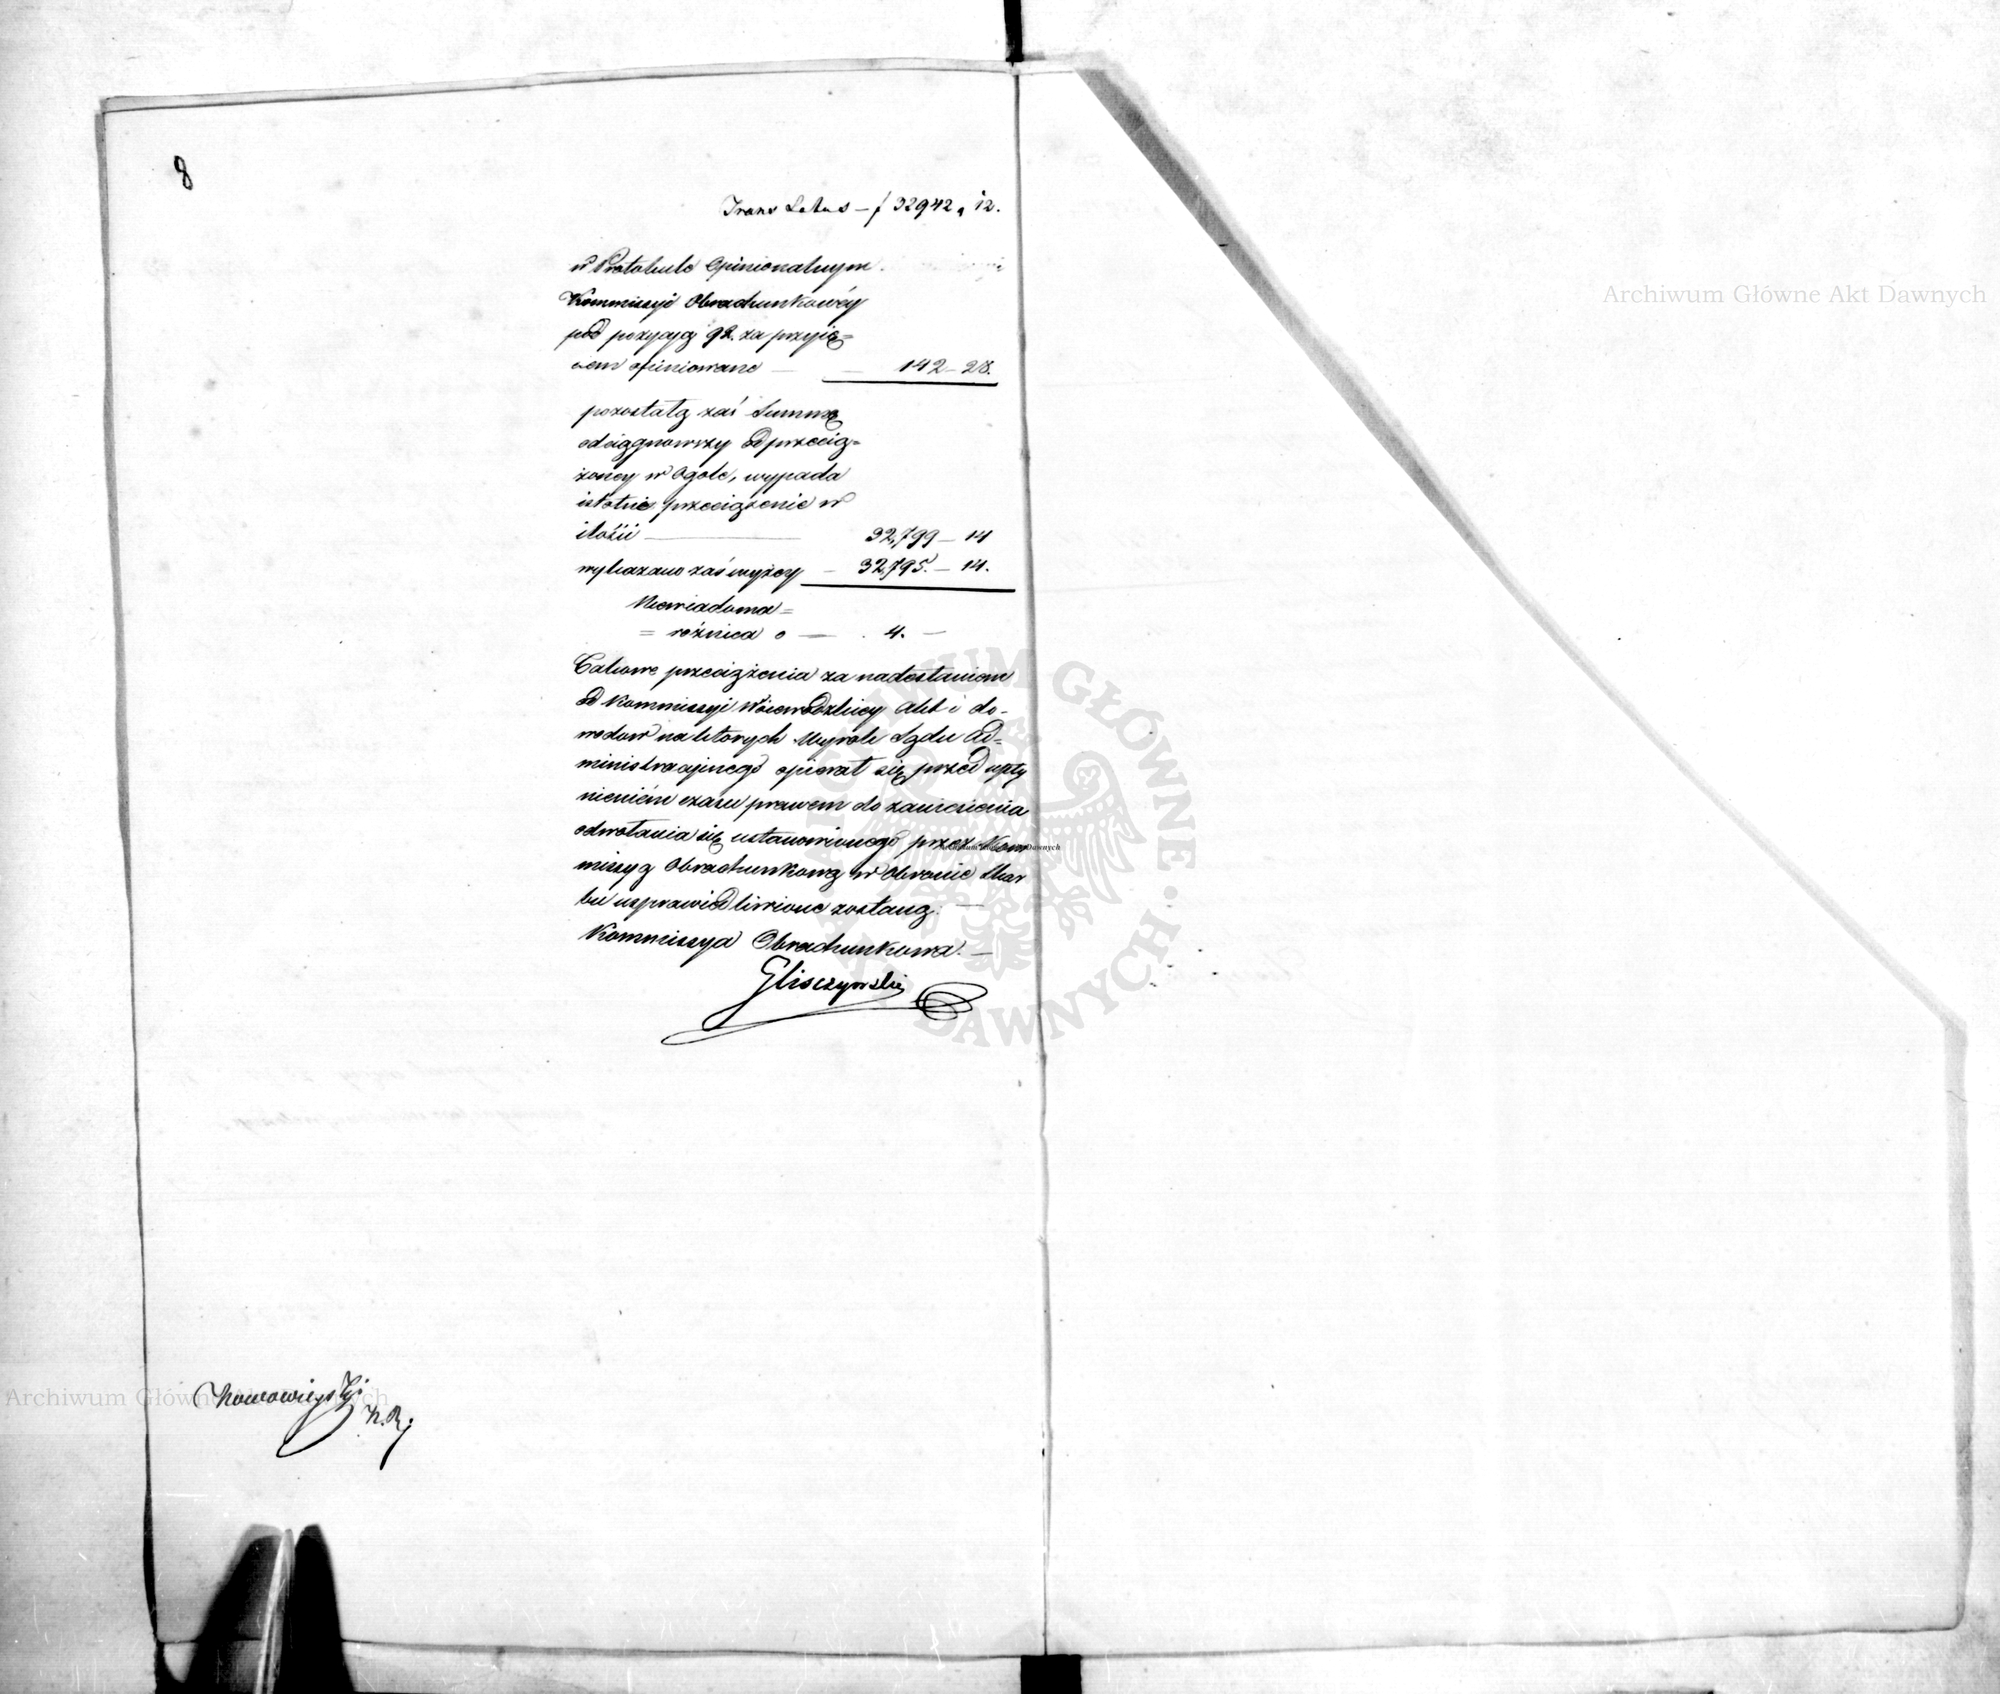 8
Trans Latus — f 32942 „ 12.
w Protokule Opinionalnym
Kommissyi Obrachunkowéy
pod pozycyą 92. za przyię=
ciem opiniowane — — 142 — 28.
pozostałą zaś Summę
odciągnowszy od przecią=
żoney w Ogole, wypada
istotnie przeciążenie w
ilości — 32,799 — 14
wykazano zaś wyżey — 32,795. — 14.
Niewiadoma =
= rożnica o — 4. —
Całkowe przeciążenia za nadesłaniem
od Kommissyi Woiewodzkiey Akt i do-
wodow na ktorych Wyrok Sądu Ad=
ministracyjnego opierał się przed upły
nieniém czasu prawem do zaniesienia
odwołania się ustanowionego przez Kom
missyą Obrachunkową w Obronie Skar
bu usprawiedliwione zostaną. —
Kommissya Obrachunkowa. —
Gliszczynski
Nowowieyski
Archiwum Główne Akt Dawnych
Archiwum Główne Akt Dawnych
ARCHIWUM GŁÓWNE AKT DAWNYCH